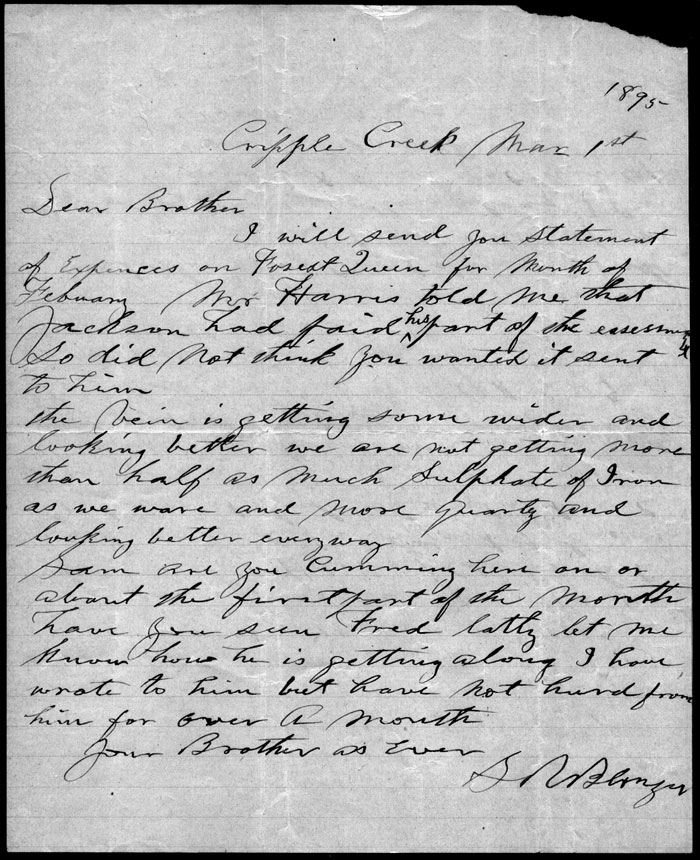 1895
Cripple Creek Mar 1st
Dear Brother
I will send you Statement
of Expences on Forest Queen for Month of
Febuary Mr Harris told me that
Jackson had paid his part of the
So did Not think you wanted it sent
to him
the Vein is getting some wider and
looking better we are not getting more
than half as Much Sulphate of Iron
as we ware and More quartz and
looking better everyway
Sam are you Cumming here on or
about the first part of the Month
have you seen Fred latly let me
Know how he is getting along I have
wrote to him but have Not hurd from
him for over A Month
Your Brother as Ever
Blonger